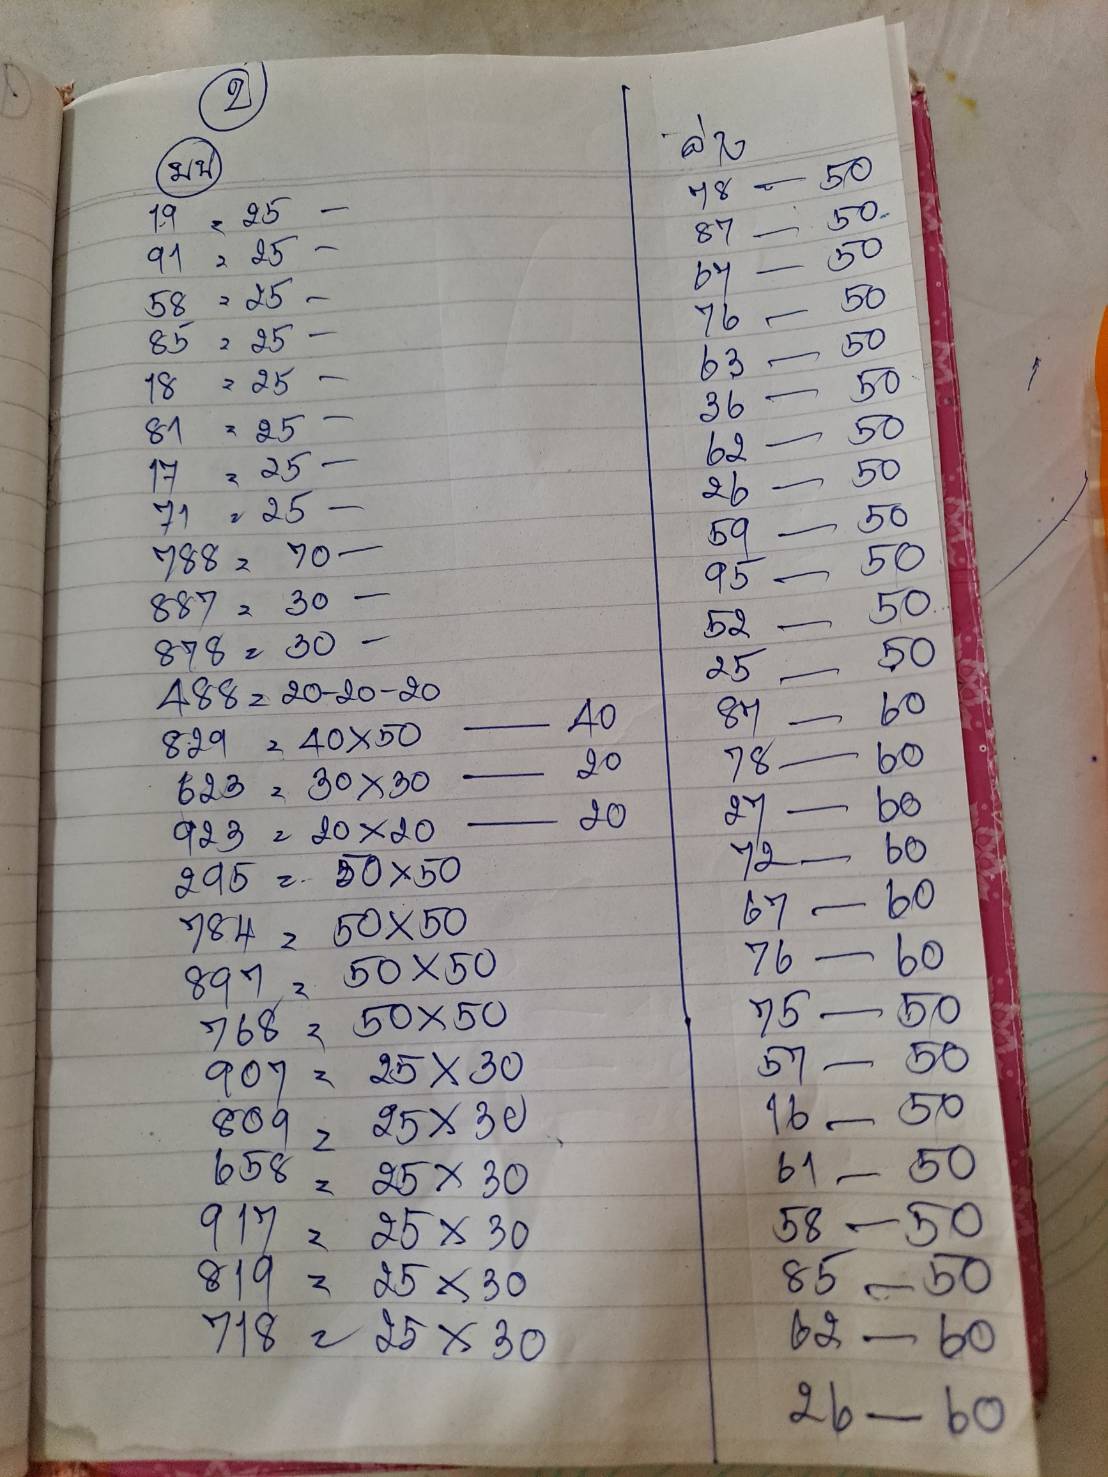 2
บน
19 = 25 -
91 = 25 -
58 = 25 -
85 = 25 -
18 = 25 -
81 = 25 -
17 = 25 -
71 = 25 -
788 = 70 -
887 = 30 -
878 = 30 -
488 = 20-20-20
829 = 40×50 — 40
623 = 30×30 — 20
923 = 20×20 — 20
295 = 50×50
784 = 50×50
897 = 50×50
768 = 50×50
907 = 25×30
809 = 25×30
658 = 25×30
917 = 25×30
819 = 25×30
718 = 25×30
ล่าง
78 — 50
87 — 50
67 — 50
76 — 50
63 — 50
36 — 50
62 — 50
26 — 50
59 — 50
95 — 50
52 — 50
25 — 50
87 — 60
78 — 60
27 — 60
72 — 60
67 — 60
76 — 60
75 — 50
57 — 50
16 — 50
61 — 50
58 — 50
85 — 50
62 — 60
26 — 60